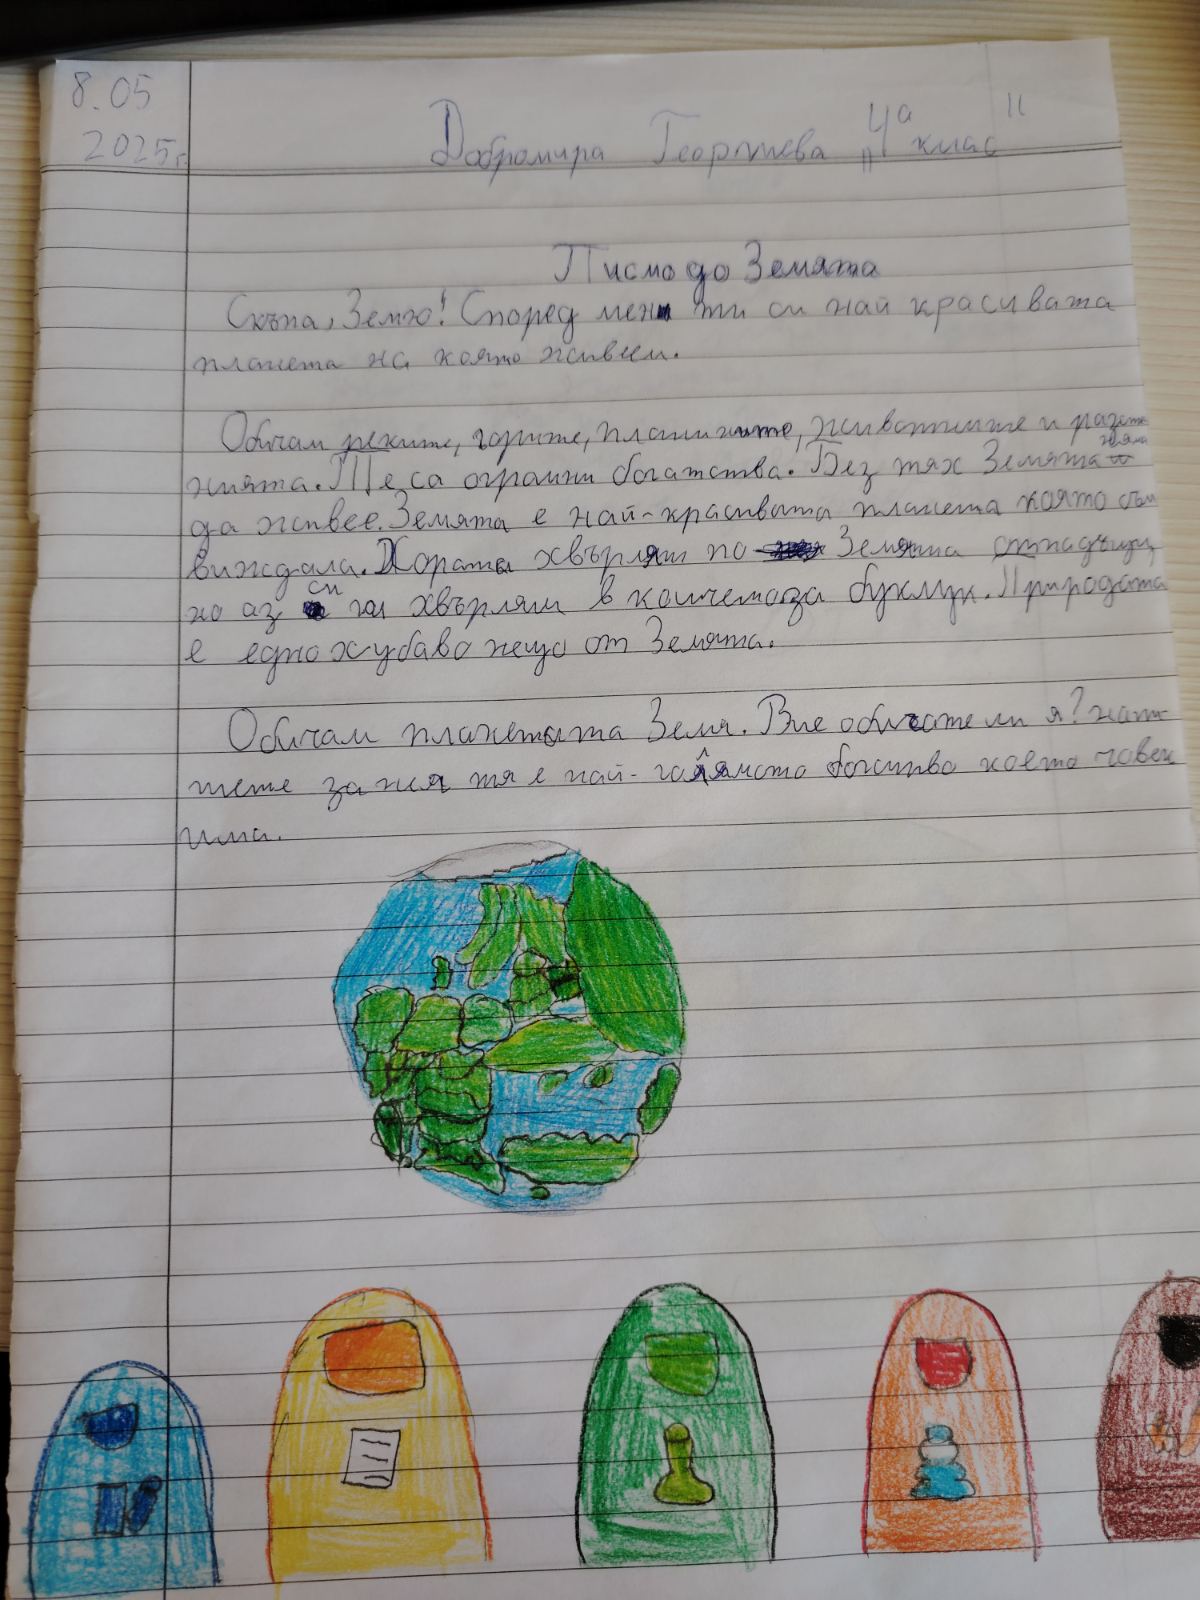 8.05
2025г.
Добромира Георгиева „4а клас"
Писмо до Земята
Скъпа, Земю! Според мен ти си най красивата
планета на която живеем.
Обичам реките, горите, планините, животните и расте
нията. Те са огромни богатства. Без тях Земята няма
да живее. Земята е най-красивата планета която съм
виждала. Хората хвърлят по Земята отпадъци,
но аз си ги хвърлям в кошчето за боклук. Природата
е едно хубаво нещо от Земята.
Обичам планетата Земя. Вие обичате ли я?
за нея тя е най-голямото богатство което човек
има.